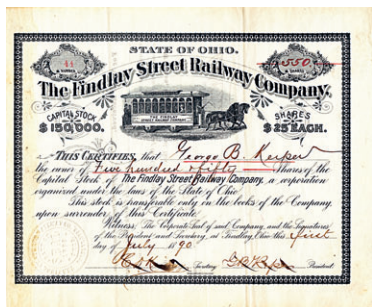 STATE OF OHIO.
44
550
The Findlay Street Railway Company,
CAPITAL STOCK
$150,000.
SHARES
$25 EACH.
THE FINDLAY
STREET RAILWAY COMPANY
THIS CERTIFIES, that George B. Kerper
the owner of Five hundred & fifty Shares of the
Capital Stock of The Findlay Street Railway Company, a corporation
organized under the laws of the State of Ohio
This stock is transferable only on the books of the Company
upon surrender of this Certificate.
Witness, The Corporate Seal of said Company, and the Signatures
of the President and Secretary, at Findlay, Ohio this first
day of July 1890
Secretary
President